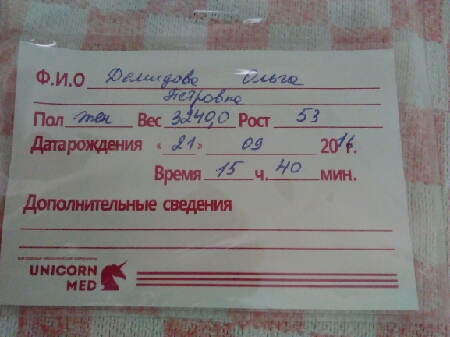 Ф.И.О Демидова Ольга
Петровна
Пол жен Вес 3240,0 Рост 53
Дата рождения «21» 09 2016г.
Время 15 ч. 40 мин.
Дополнительные сведения
UNICORN
MED